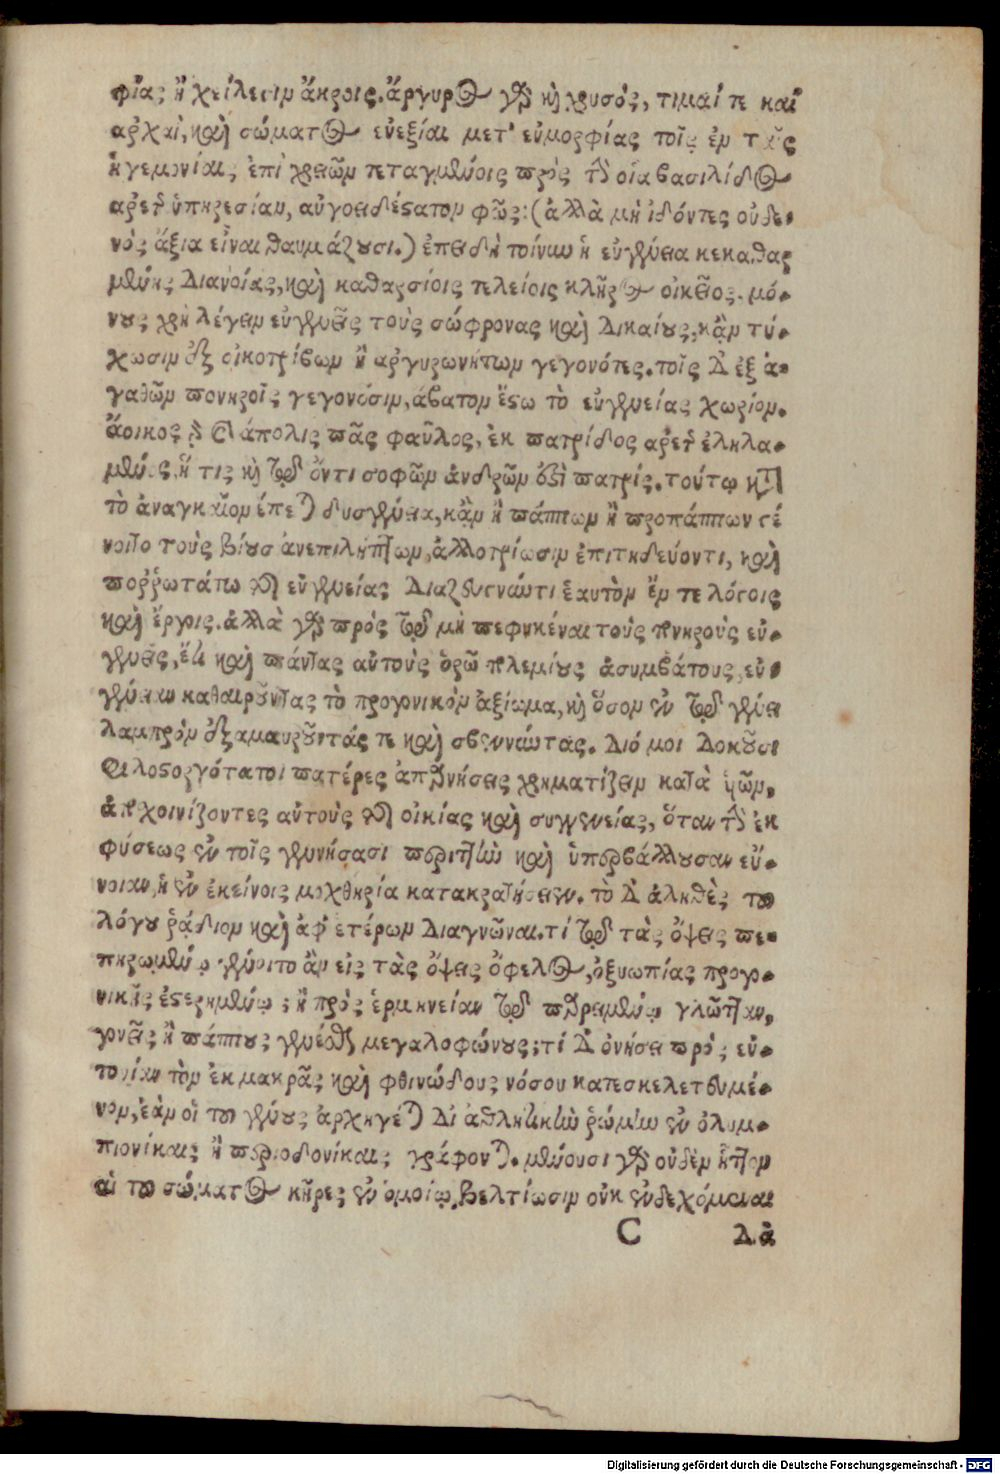 φίας ἢ χείλεσιν ἄκροις. ἄργυρος γὰρ καὶ χρυσός, τιμαί τε καὶ
ἀρχαὶ, καὶ σώματος εὐεξίαι μετ' εὐμορφίας τοῖς ἐν ταῖς
ἡγεμονίαις ἐπὶ χρειῶν τεταγμένοις πρὸς τὴν οἷα βασιλίδος
ἀρετῆς ὑπηρεσίαν, αὐγοειδέστατον φῶς: (ἀλλὰ μὴ ἰδόντες οὐδε-
νὸς ἄξια εἶναι θαυμάζουσι.) ἐπειδὴ τοίνυν ἡ εὐγένεια κεκαθαρ
μένης διανοίας, καὶ καθαρσίοις τελείοις κλῆρος οἰκεῖος. μό-
νους χρὴ λέγειν εὐγενεῖς τοὺς σώφρονας καὶ δικαίους, κἂν τύ-
χωσιν ἐξ οἰκοτρίβων ἢ ἀργυρωνήτων γεγονότες. τοῖς δ' ἐξ ἀ-
γαθῶν πονηροῖς γεγονόσιν, ἄβατον ἔστω τὸ εὐγενείας χωρίον.
ἄοικος γὰρ καὶ ἄπολις πᾶς φαῦλος, ἐκ πατρίδος ἀρετῆς ἐληλα-
μένος, ἥ τις καὶ τῷ ὄντι σοφῶν ἀνδρῶν ἐστὶ πατρίς. τούτῳ κατὰ
τὸ ἀναγκαῖον ἕπεται δυσγένεια, κἂν ἢ πάππων ἢ προπάππων γέ
νοιτο τοὺς βίους ἀνεπιλήπτων, ἀλλοτρίωσιν ἐπιτηδεύοντι, καὶ
πορρωτάτω τῆς εὐγενείας διαζευγνύντι ἑαυτὸν ἔν τε λόγοις
καὶ ἔργοις. ἀλλὰ γὰρ πρὸς τῷ μὴ πεφυκέναι τοὺς πονηροὺς εὐ-
γενεῖς, ἔτι καὶ πάντας αὐτοὺς ὁρῶ πολεμίους ἀσυμβάτους, εὐ-
γένειαν καθαιροῦντας τὸ προγονικὸν ἀξίωμα, καὶ ὅσον ἐν τῷ γένει
λαμπρὸν ἐξαμαυροῦντάς τε καὶ σβεννύντας. διό μοι δοκοῦσι
φιλοστοργότατοι πατέρες ἀπορρήσεις χρηματίζειν κατὰ υἱῶν,
ἀποσχοινίζοντες αὐτοὺς τῆς οἰκίας καὶ συγγενείας, ὅταν τὴν ἐκ
φύσεως ἐν τοῖς γεννήσασι περιττὴν καὶ ὑπερβάλλουσαν εὔ-
νοιαν, ἡ ἐν ἐκείνοις μοχθηρία κατακρατήσειεν. τὸ δ' ἀληθὲς τοῦ
λόγου ῥᾴδιον καὶ ἀφ' ἑτέρων διαγνῶναι. τί τῷ τὰς ὄψεις πε-
πηρωμένῳ γένοιτο ἂν εἰς τὰς ὄψεις ὄφελος, ὀξυωπίας προγο-
νικῆς ἐστερημένῳ; ἢ πρὸς ἑρμηνείαν τῷ παρειμένῳ γλῶτταν,
γονεῖς ἢ πάππους γενέσθαι μεγαλοφώνους; τί δ' ὀνήσει πρὸς εὐ-
τονίαν τὸν ἐκ μακρᾶς καὶ φθινώδους νόσου κατεσκελετευμέ-
νον, ἐὰν οἱ τοῦ γένους ἀρχηγέται δι' ἀθλητικὴν ῥώμην ἐν ὀλυμ-
πιονίκαις ἢ περιοδονίκαις γράφονται. μένουσι γὰρ οὐδὲν ἧττον
αἱ τοῦ σώματος κῆρες ἐν ὁμοίῳ, βελτίωσιν οὐκ ἐνδεχόμεναι
C διὰ
Digitalisierung gefördert durch die Deutsche Forschungsgemeinschaft - DFG